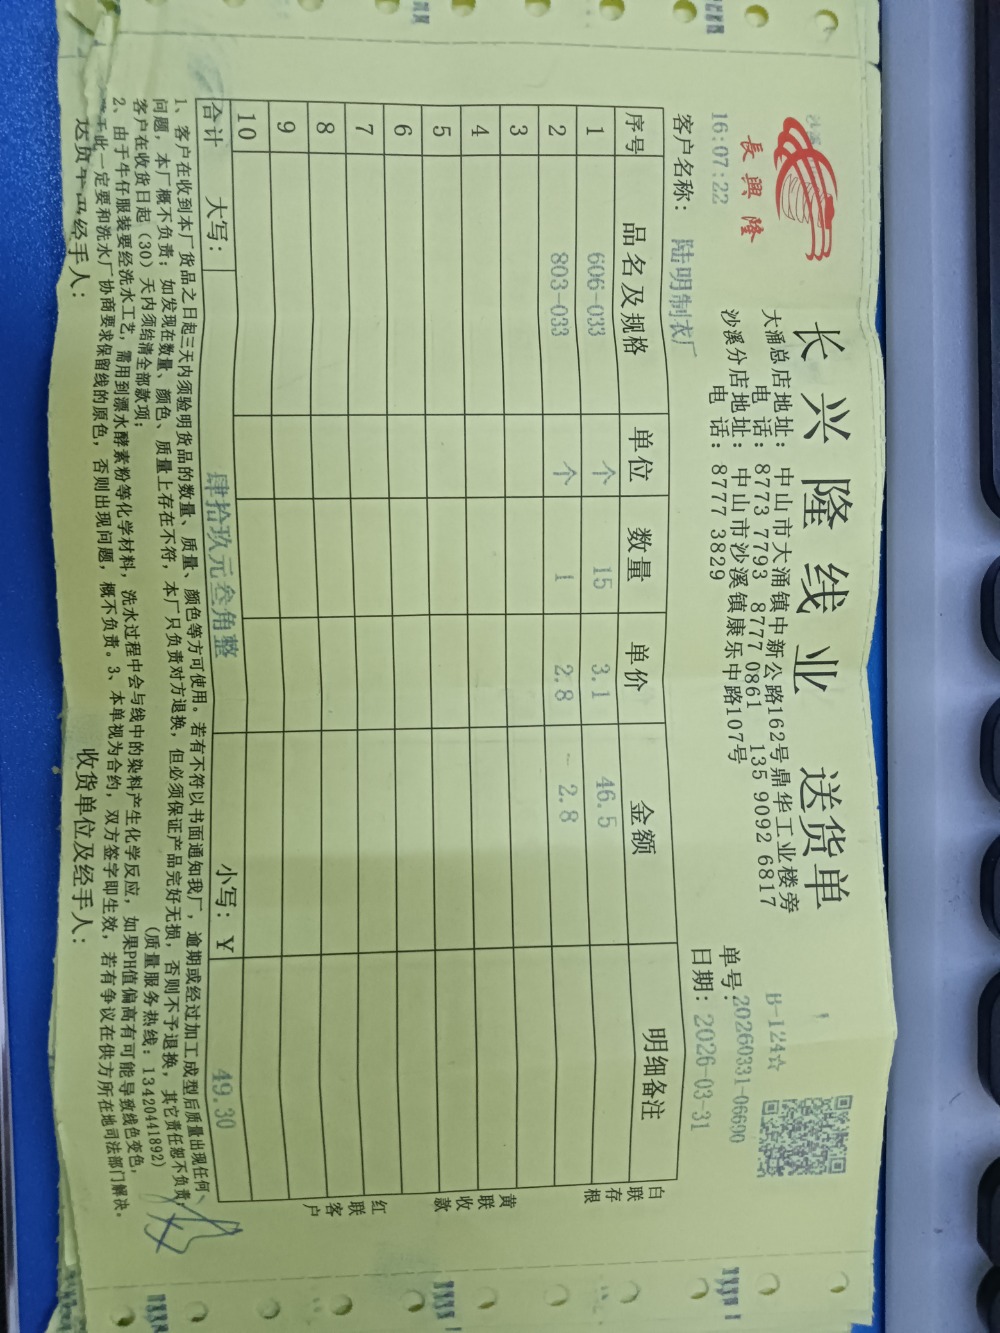 長興隆
长兴隆线业 送货单
大涌总店地址：中山市大涌镇中新公路162号鼎华工业楼旁
电 话：8773 7793 8777 0861 135 9092 6817
沙溪分店地址：中山市沙溪镇康乐中路107号
电 话：8777 3829
B-124☆
单号：20260331-06690
日期：2026-03-31
16:07:22
客户名称：陆明制衣厂
序号 品名及规格 单位 数量 单价 金额 明细备注
1 606-033 个 15 3.1 46.5
2 803-033 个 1 2.8 2.8
3
4
5
6
7
8
9
10
合计 大写：肆拾玖元叁角整 小写：￥ 49.30
白联存根
黄联收款
红联客户
1、客户在收到本厂货品之日起三天内须验明货品的数量、质量、颜色等方可使用。若有不符以书面通知我厂，逾期或经过加工成型后质量出现任何
问题，本厂概不负责；如发现在数量、颜色、质量上存在不符，本厂只负责对方退换，但必须保证产品完好无损，否则不予退换，其它责任恕不负责
客户在收货日起（30）天内须结清全部款项； （质量服务热线：13420441892）
2、由于牛仔服装要经洗水工艺，需用到漂水酵素粉等化学材料，洗水过程中会与线中的染料产生化学反应，如果PH值偏高有可能导致线色变色，
此一定要和洗水厂协商要求保留线的原色，否则出现问题，概不负责。3、本单视为合约，双方签字即生效，若有争议在供方所在地司法部门解决。
经手人： 收货单位及经手人：